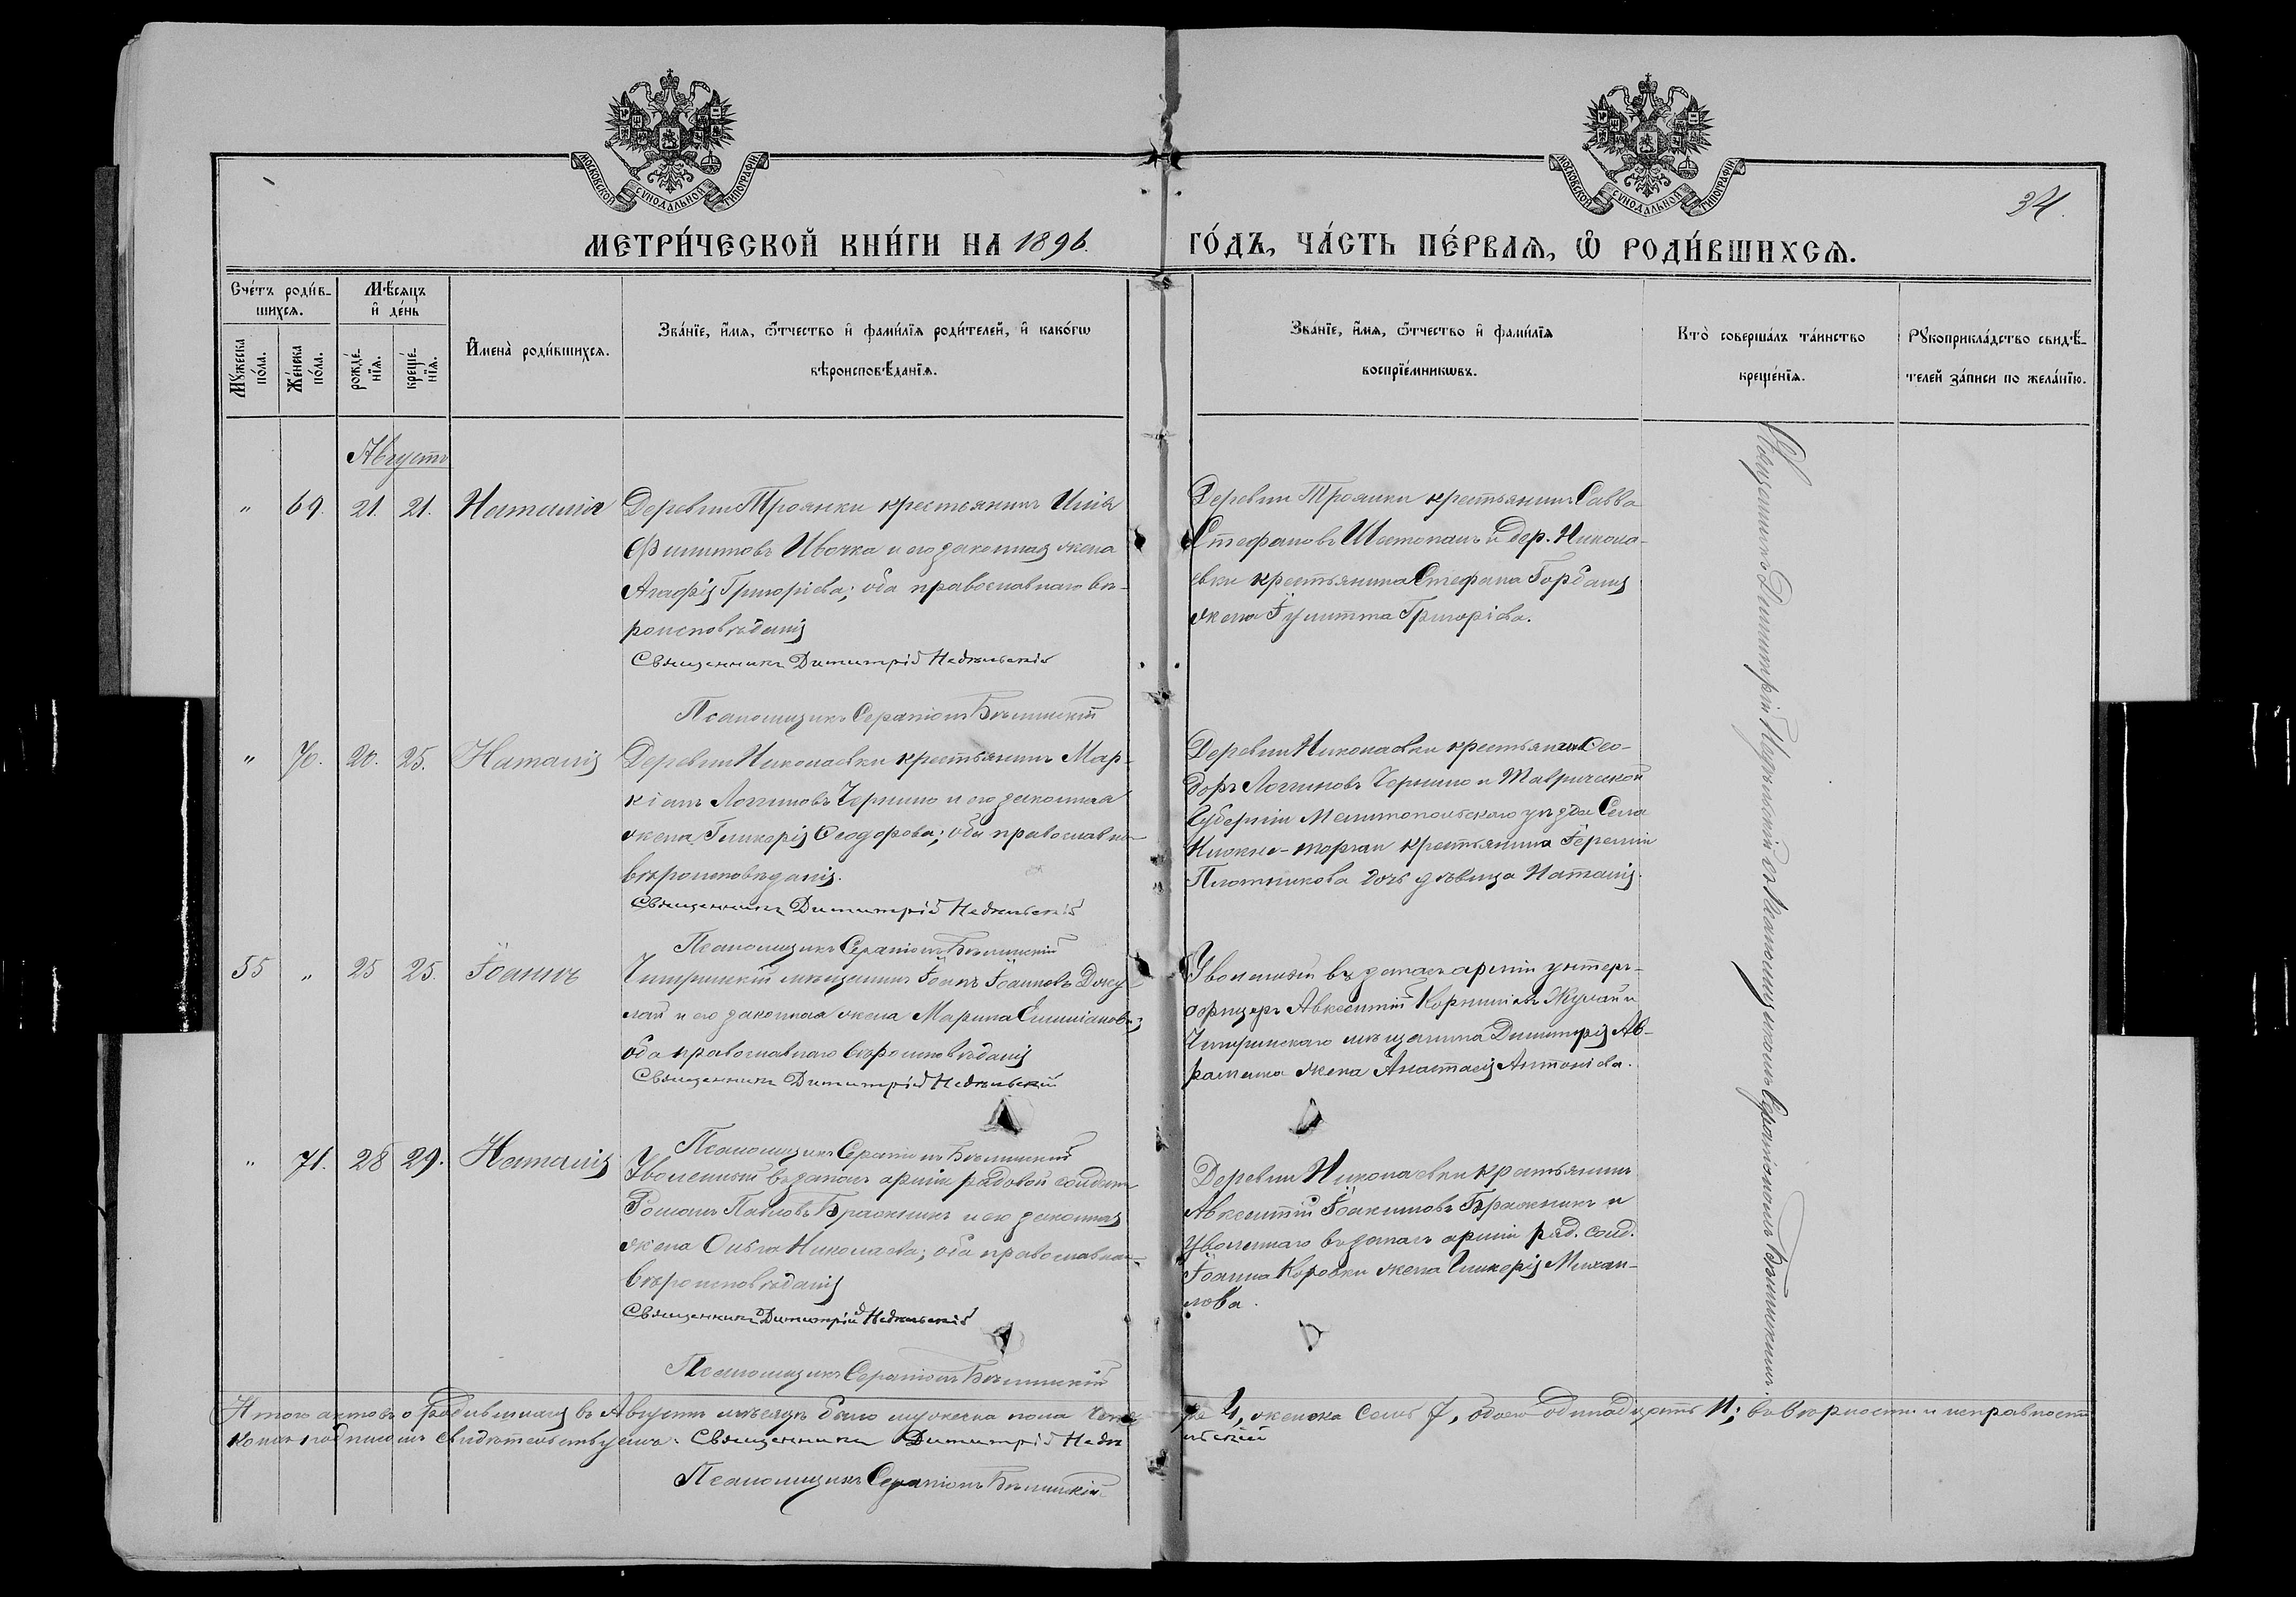 МОСКОВСКОЙ СѴНОДАЛЬНОЙ ТИПОГРАФІИ
МОСКОВСКОЙ СѴНОДАЛЬНОЙ ТИПОГРАФІИ
34.
МЕТРИ́ЧЕСКОЙ КНИ́ГИ НА 1896. ГО́ДЪ, ЧА́СТЬ ПЕ́РВАѦ, Ѡ҆ РОДИ́ВШИХСѦ.
Сче́тъ роди́в-
шихсѧ.
Мꙋ́жеска по́ла.
Же́нска по́ла.
Мѣ́сѧцъ
и҆ де́нь
рожде́-
нїѧ.
креще́-
нїѧ.
И҆мена̀ роди́вшихсѧ.
Зва́нїе, и҆́мѧ, ѻ҆́тчество и҆ фами́лїѧ роди́телей, и҆ како́гѡ
вѣроисповѣ́данїѧ.
Зва́нїе, и҆́мѧ, ѻ҆́тчество и҆ фами́лїѧ
воспрїе́мникѡвъ.
Кто̀ соверша́лъ та́инство
креще́нїѧ.
Рꙋкоприкла́дство свидѣ́-
телей за́писи по жела́нїю.
Августъ
" 69. 21. 21. Наталія
Деревни Троянки крестьянинъ Илія
Филиповъ Ивочка и его законная жена
Агафія Григоріева; оба православнаго вѣ-
роисповѣданія
Священникъ Димитрій Недѣльскій
Псаломщикъ Серапіонъ Бѣлинскій
Деревни Троянки крестьянинъ Савва
Стефановъ Шаповалъ и дер. Никола-
евки крестьянина Стефана Горбаня
жена Іулитта Григоріева.
" 70. 20. 25. Наталія
Деревни Николаевки крестьянинъ Мар-
кіанъ Логгиновъ Черныло и его законная
жена Гликерія Ѳеодорова; оба православна-
вѣроисповѣданія.
Священникъ Димитрій Недѣльскій
Псаломщикъ Серапіонъ Бѣлинскій
Деревни Николаевки крестьянинъ Ѳео-
доръ Логгиновъ Черныло и Таврической
Губерніи Мелитопольскаго уѣзда Села
Нижне-торгаи крестьянина Іереміи
Плотникова дочь дѣвица Наталія.
55 " 25 25. Іоаннъ
Чигринскій мѣщанинъ Іоаннъ Іоанновъ
и его законная жена Марина Емиліанова;
оба православнаго вѣроисповѣданія
Священникъ Димитрій Недѣльскій
Псаломщикъ Серапіонъ Бѣлинскій
Уволенный въ запасъ арміи унтеръ-
офицеръ Авксентій Корниліевъ и
Чигринскаго мѣщанина Димитрія Ав-
раменка жена Анастасія Антоніева.
" 71. 28 29. Наталія
Уволенный въ запасъ арміи рядовой солдатъ
Романъ Павловъ Бражникъ и его законная
жена Ольга Николаева; оба православна-
вѣроисповѣданія
Священникъ Димитрій Недѣльскій
Псаломщикъ Серапіонъ Бѣлинскій
Деревни Николаевки крестьянинъ
Авксентій Іоакимовъ Бражникъ и
Уволеннаго въ запасъ арміи ряд. солд.
Іоанна Коровки жена Гликерія Михаи-
лова.
Священникъ Димитрій Недѣльскій съ псаломщикомъ Серапіономъ Бѣлинскимъ.
Итого актовъ о родившихся въ Августѣ мѣсяцѣ было мужеска пола четы-
ре 4, женска семь 7, обоего одинадцать 11; въ вѣрности и исправности
подписомъ свидѣтельствуемъ. Священникъ Димитрій Недѣ
льскій
Псаломщикъ Серапіонъ Бѣлинскій